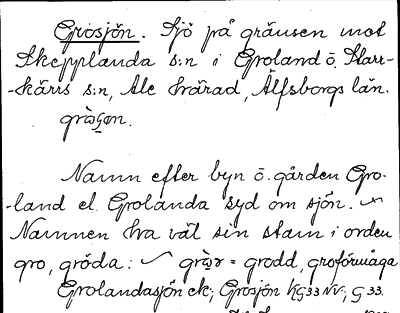 Grosjön. Sjö på gränsen mot
Skepplanda s:n i Groland ö. Starr-
-kärrs s:n, Ale härad, Älfsborgs län.
Namn efter byn ö. gården Gro-
-land el. Grolanda syd om sjön.
Namnen ha väl sin stam i orden
gro, gröda: = grodd, groförmåga
Grolandasjön ek; Grosjön